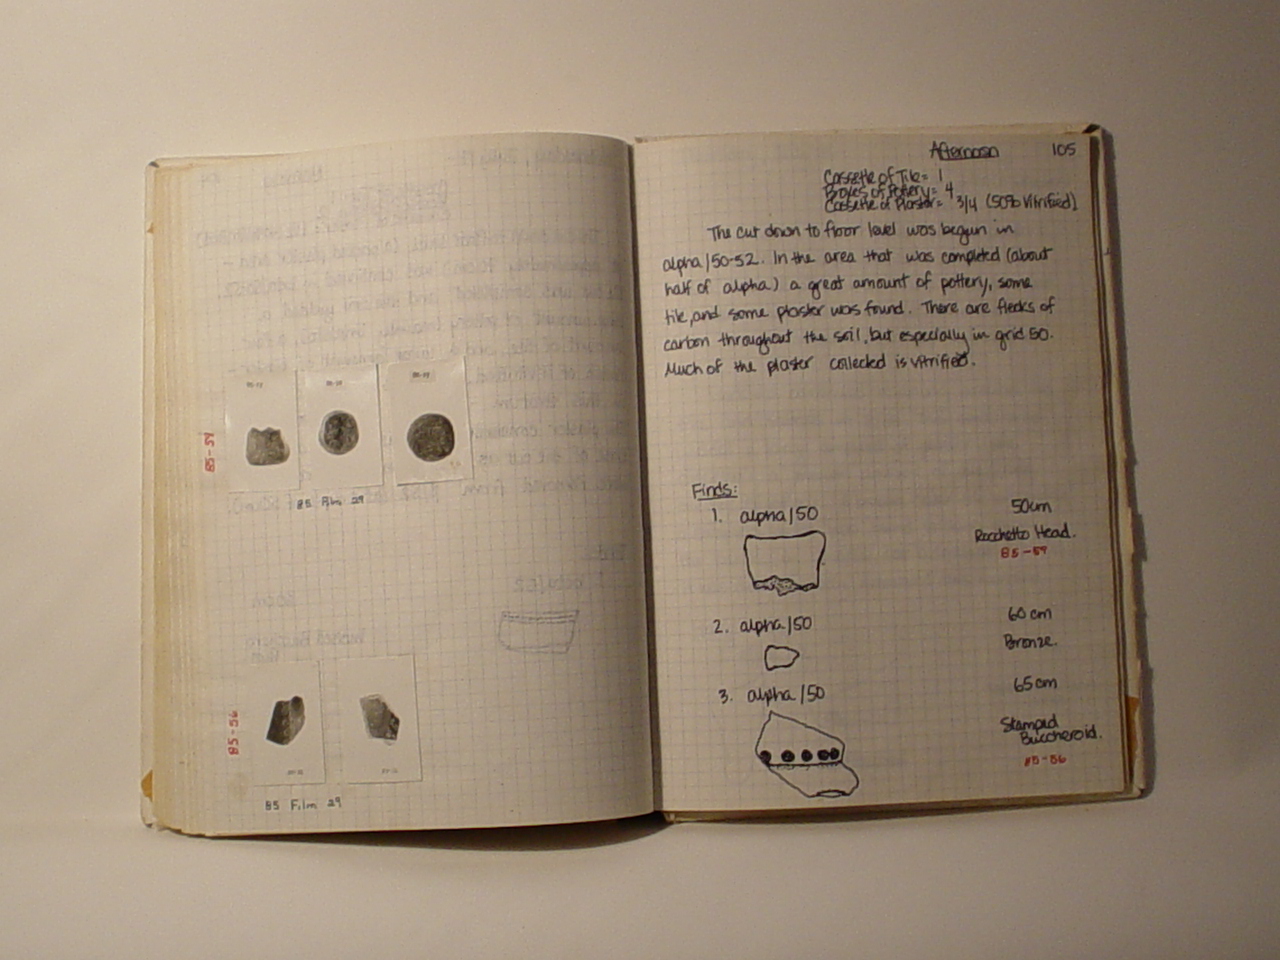 85-59
85 Film 29
85-56
85 Film 29
Afternoon 105
Cassette of Tile = 1
Boxes of Pottery = 4
Cassette of Plaster = 3/4 (50% Vitrified)
The cut down to floor level was begun in
alpha/50-52. In the area that was completed (about
half of alpha) a great amount of pottery, some
tile, and some plaster was found. There are flecks of
carbon throughout the soil, but especially in grid 50.
Much of the plaster collected is vitrified.
Finds:
1. alpha/50 50cm
Rocchetto Head.
85-59
2. alpha/50 60cm
Bronze.
3. alpha/50 65cm
Stamped
Buccheroid.
85-56